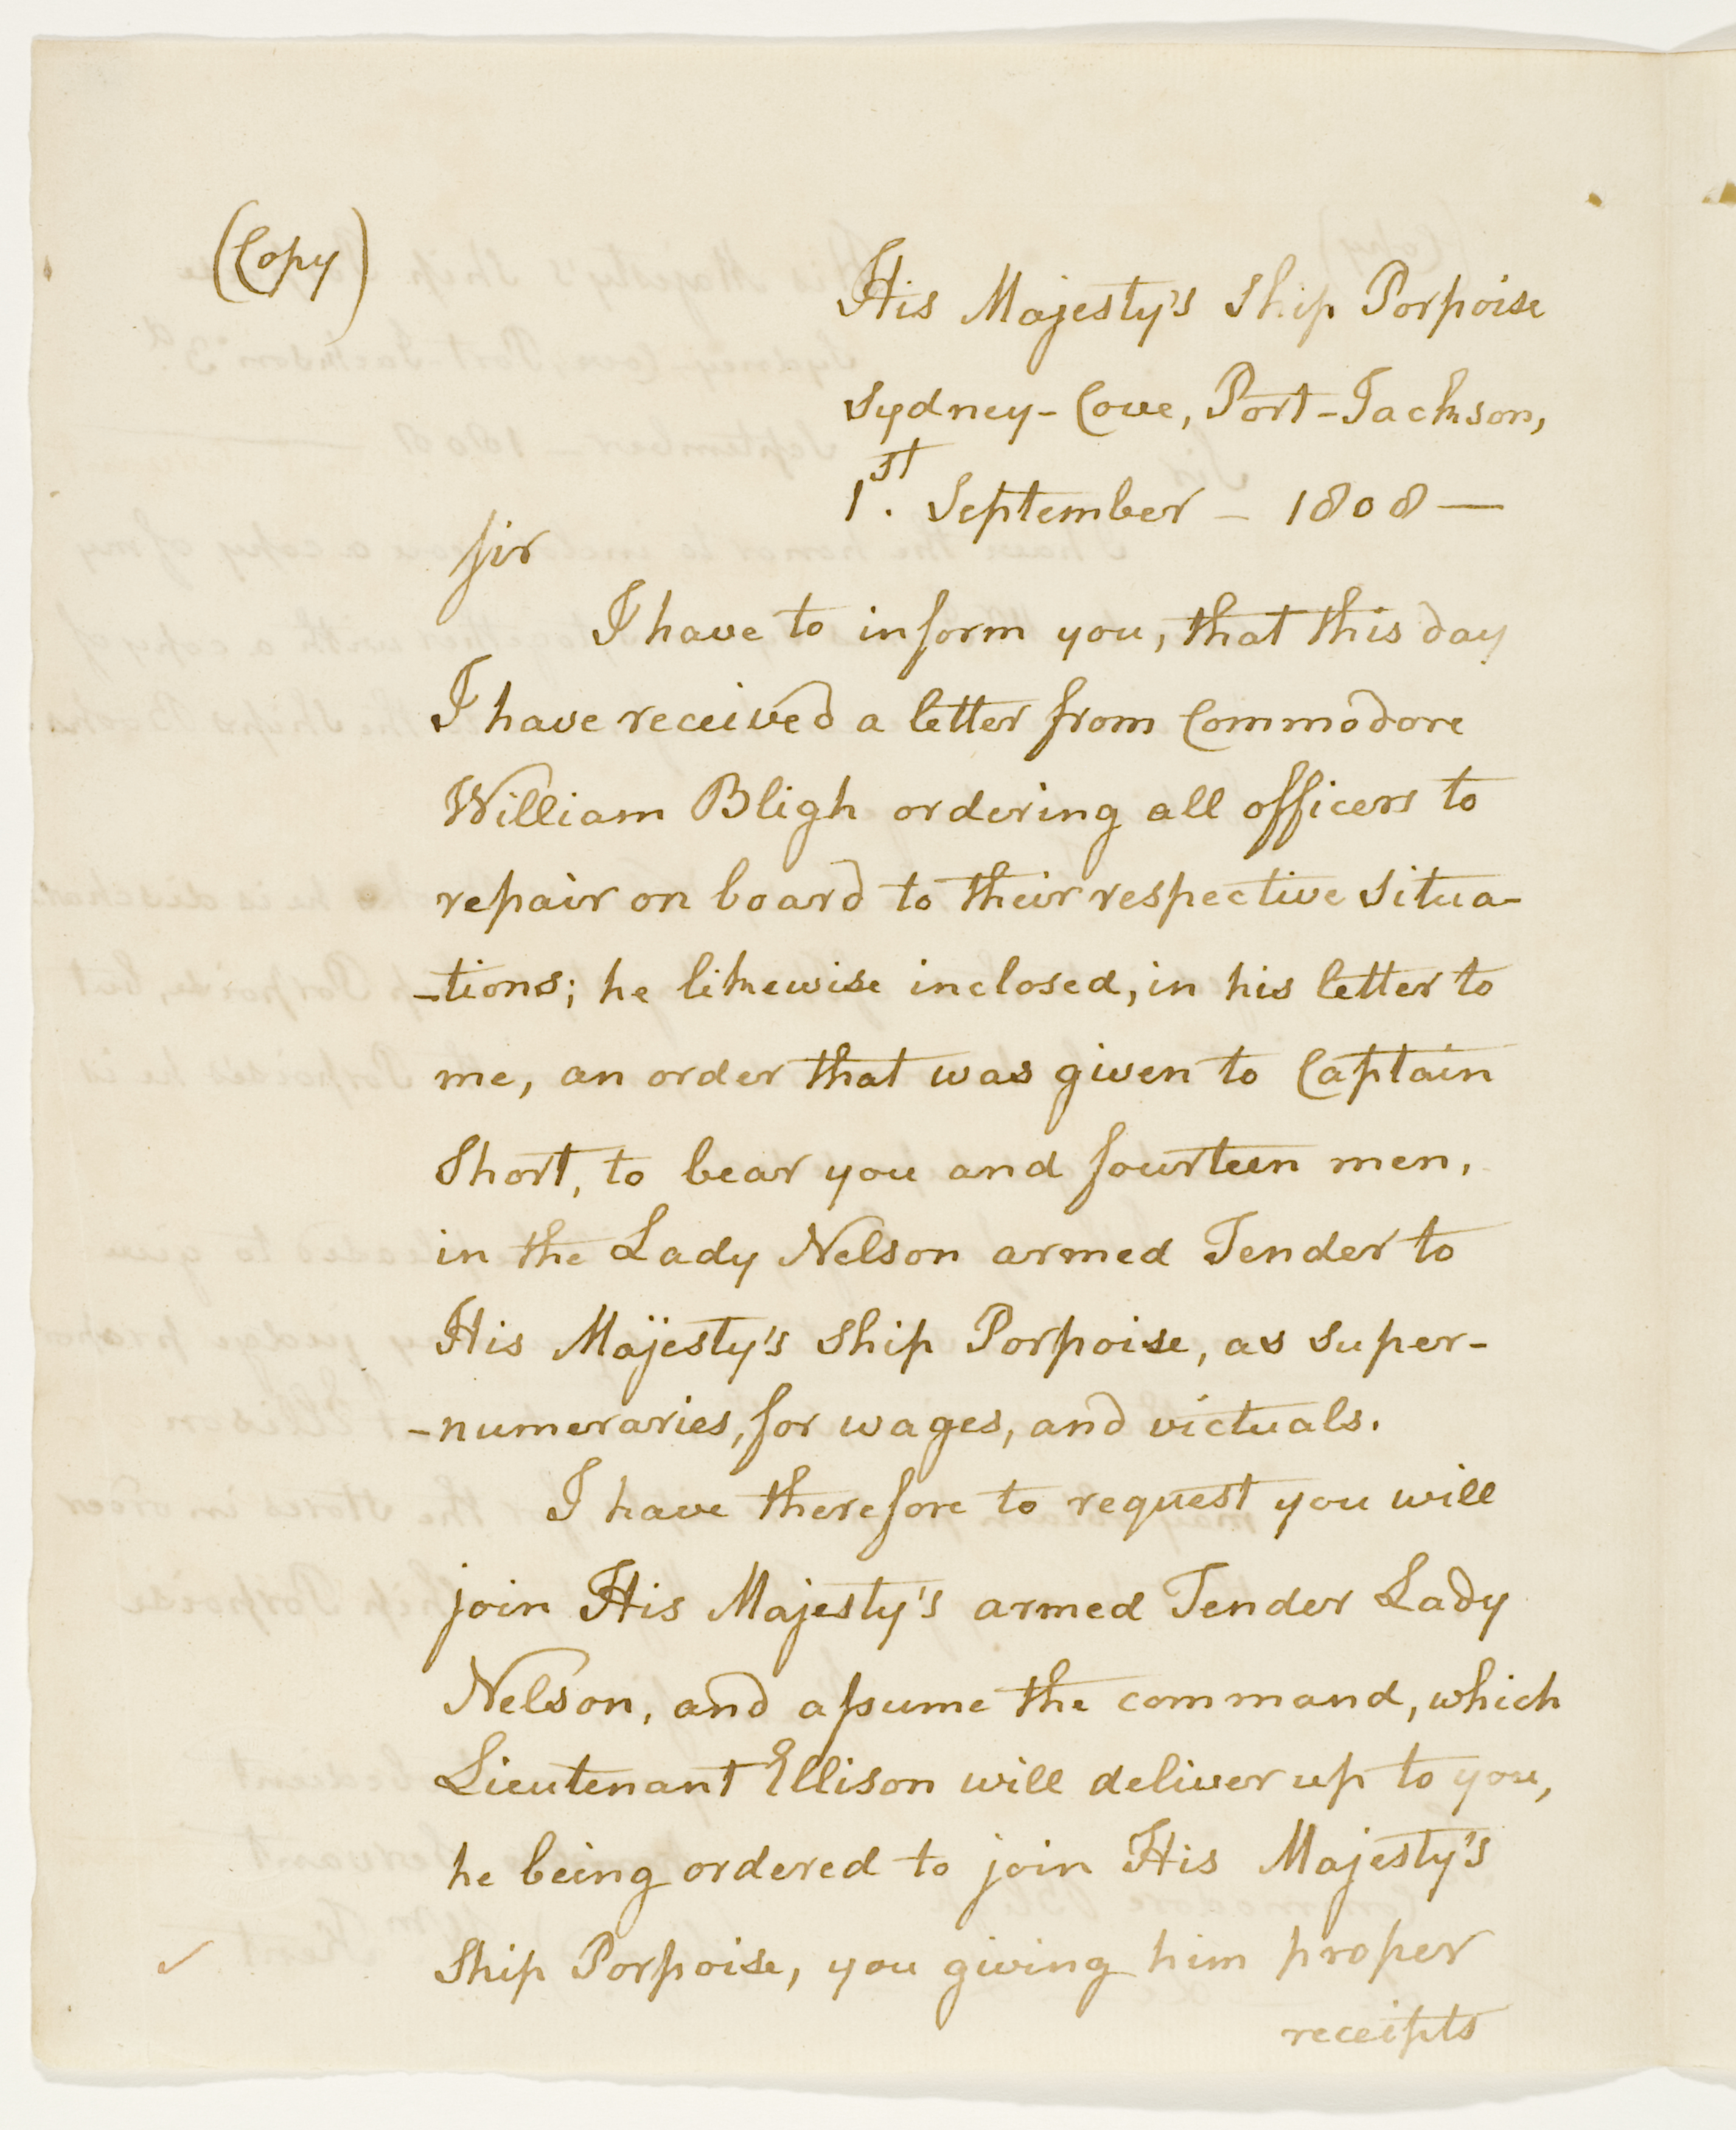 (Copy)
His Majesty's Ship Porpoise
Sydney-Cove, Port-Jackson,
1st. September - 1808 —
Sir
I have to inform you, that this day
I have received a letter from Commodore
William Bligh ordering all officers to
repair on board to their respective situa-
-tions; he likewise inclosed, in his letter to
me, an order that was given to Captain
Short, to bear you and fourteen men,
in the Lady Nelson armed Tender to
His Majesty's Ship Porpoise, as super-
-numeraries, for wages, and victuals.
I have therefore to request you will
join His Majesty's armed Tender Lady
Nelson, and aſsume the command, which
Lieutenant Ellison will deliver up to you,
he being ordered to join His Majesty's
Ship Porpoise, you giving him proper
receipts